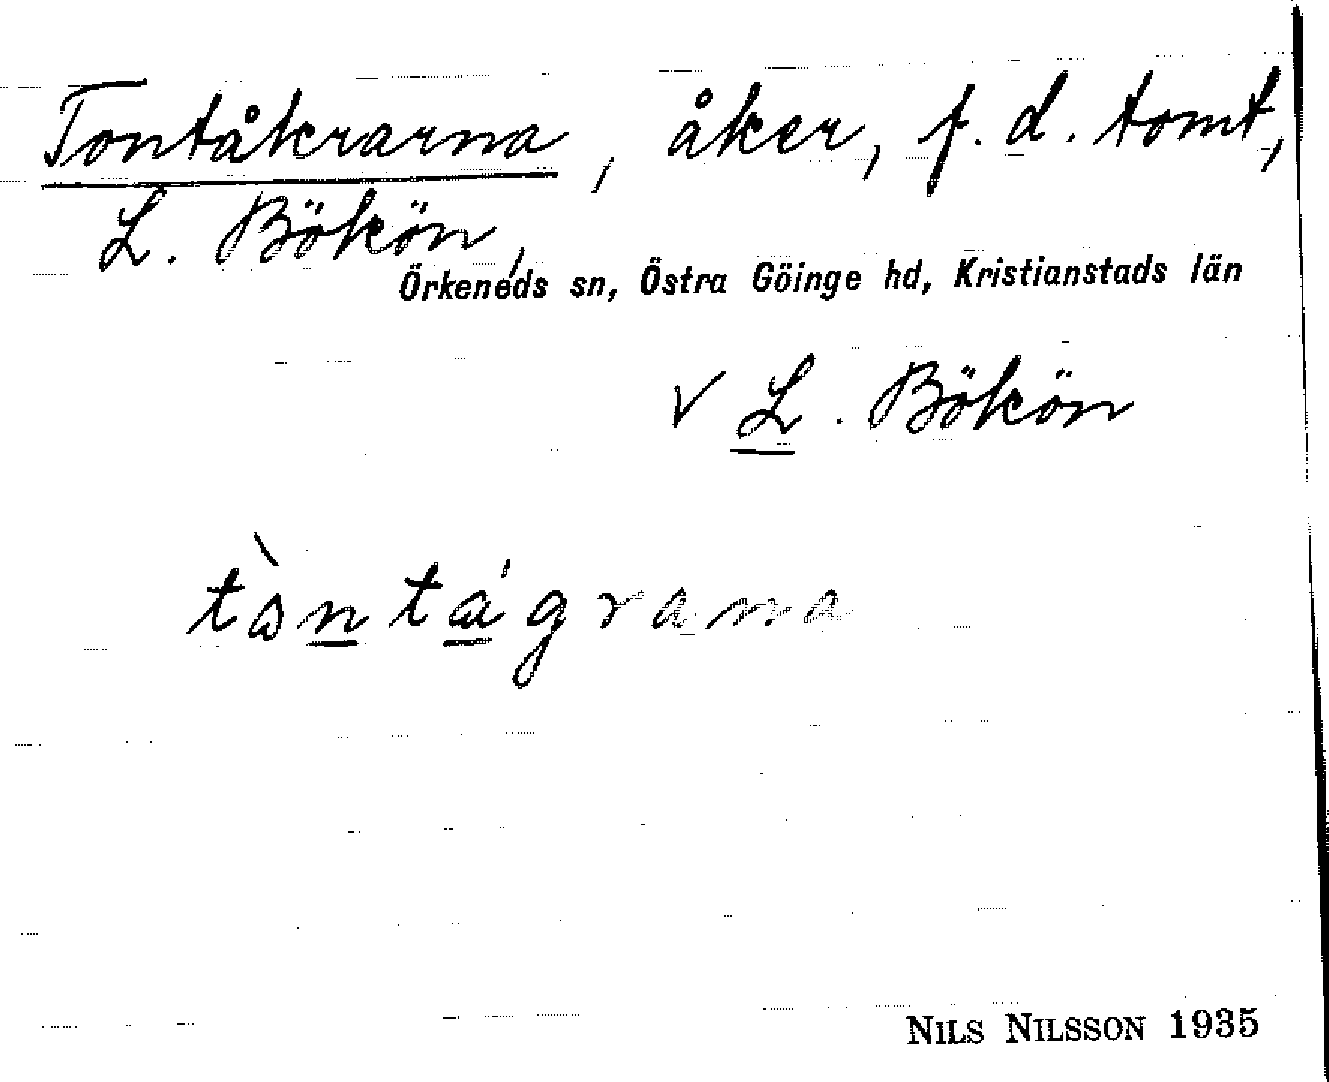 Tontåkrarna, åker, f. d. tomt,
L. Bökön,
Örkeneds sn, Östra Göinge hd, Kristianstads län
V L. Bökön
NILS NILSSON 1935